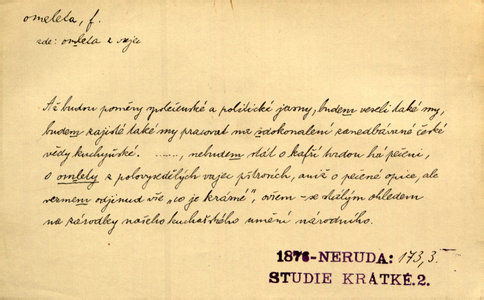 omeleta, f.
zde: omleta z vajec
Až budou poměry společenské a politické jasny, budem veseli také my,
budem zajisté také my pracovat na zdokonalení zanedbávané české
vědy kuchyňské. ......, nebudem stát o kafří tvrdou há pečeni,
o omlety z polovysedělých vajec pštrosích, aniž o pečené opice, ale
vezmem odjinud vše „co je krámé“, ovšem – se stálým ohledem
na zárodky našeho kuchařského umění národního.
1876-NERUDA: 173,3.
STUDIE KRÁTKÉ.2.